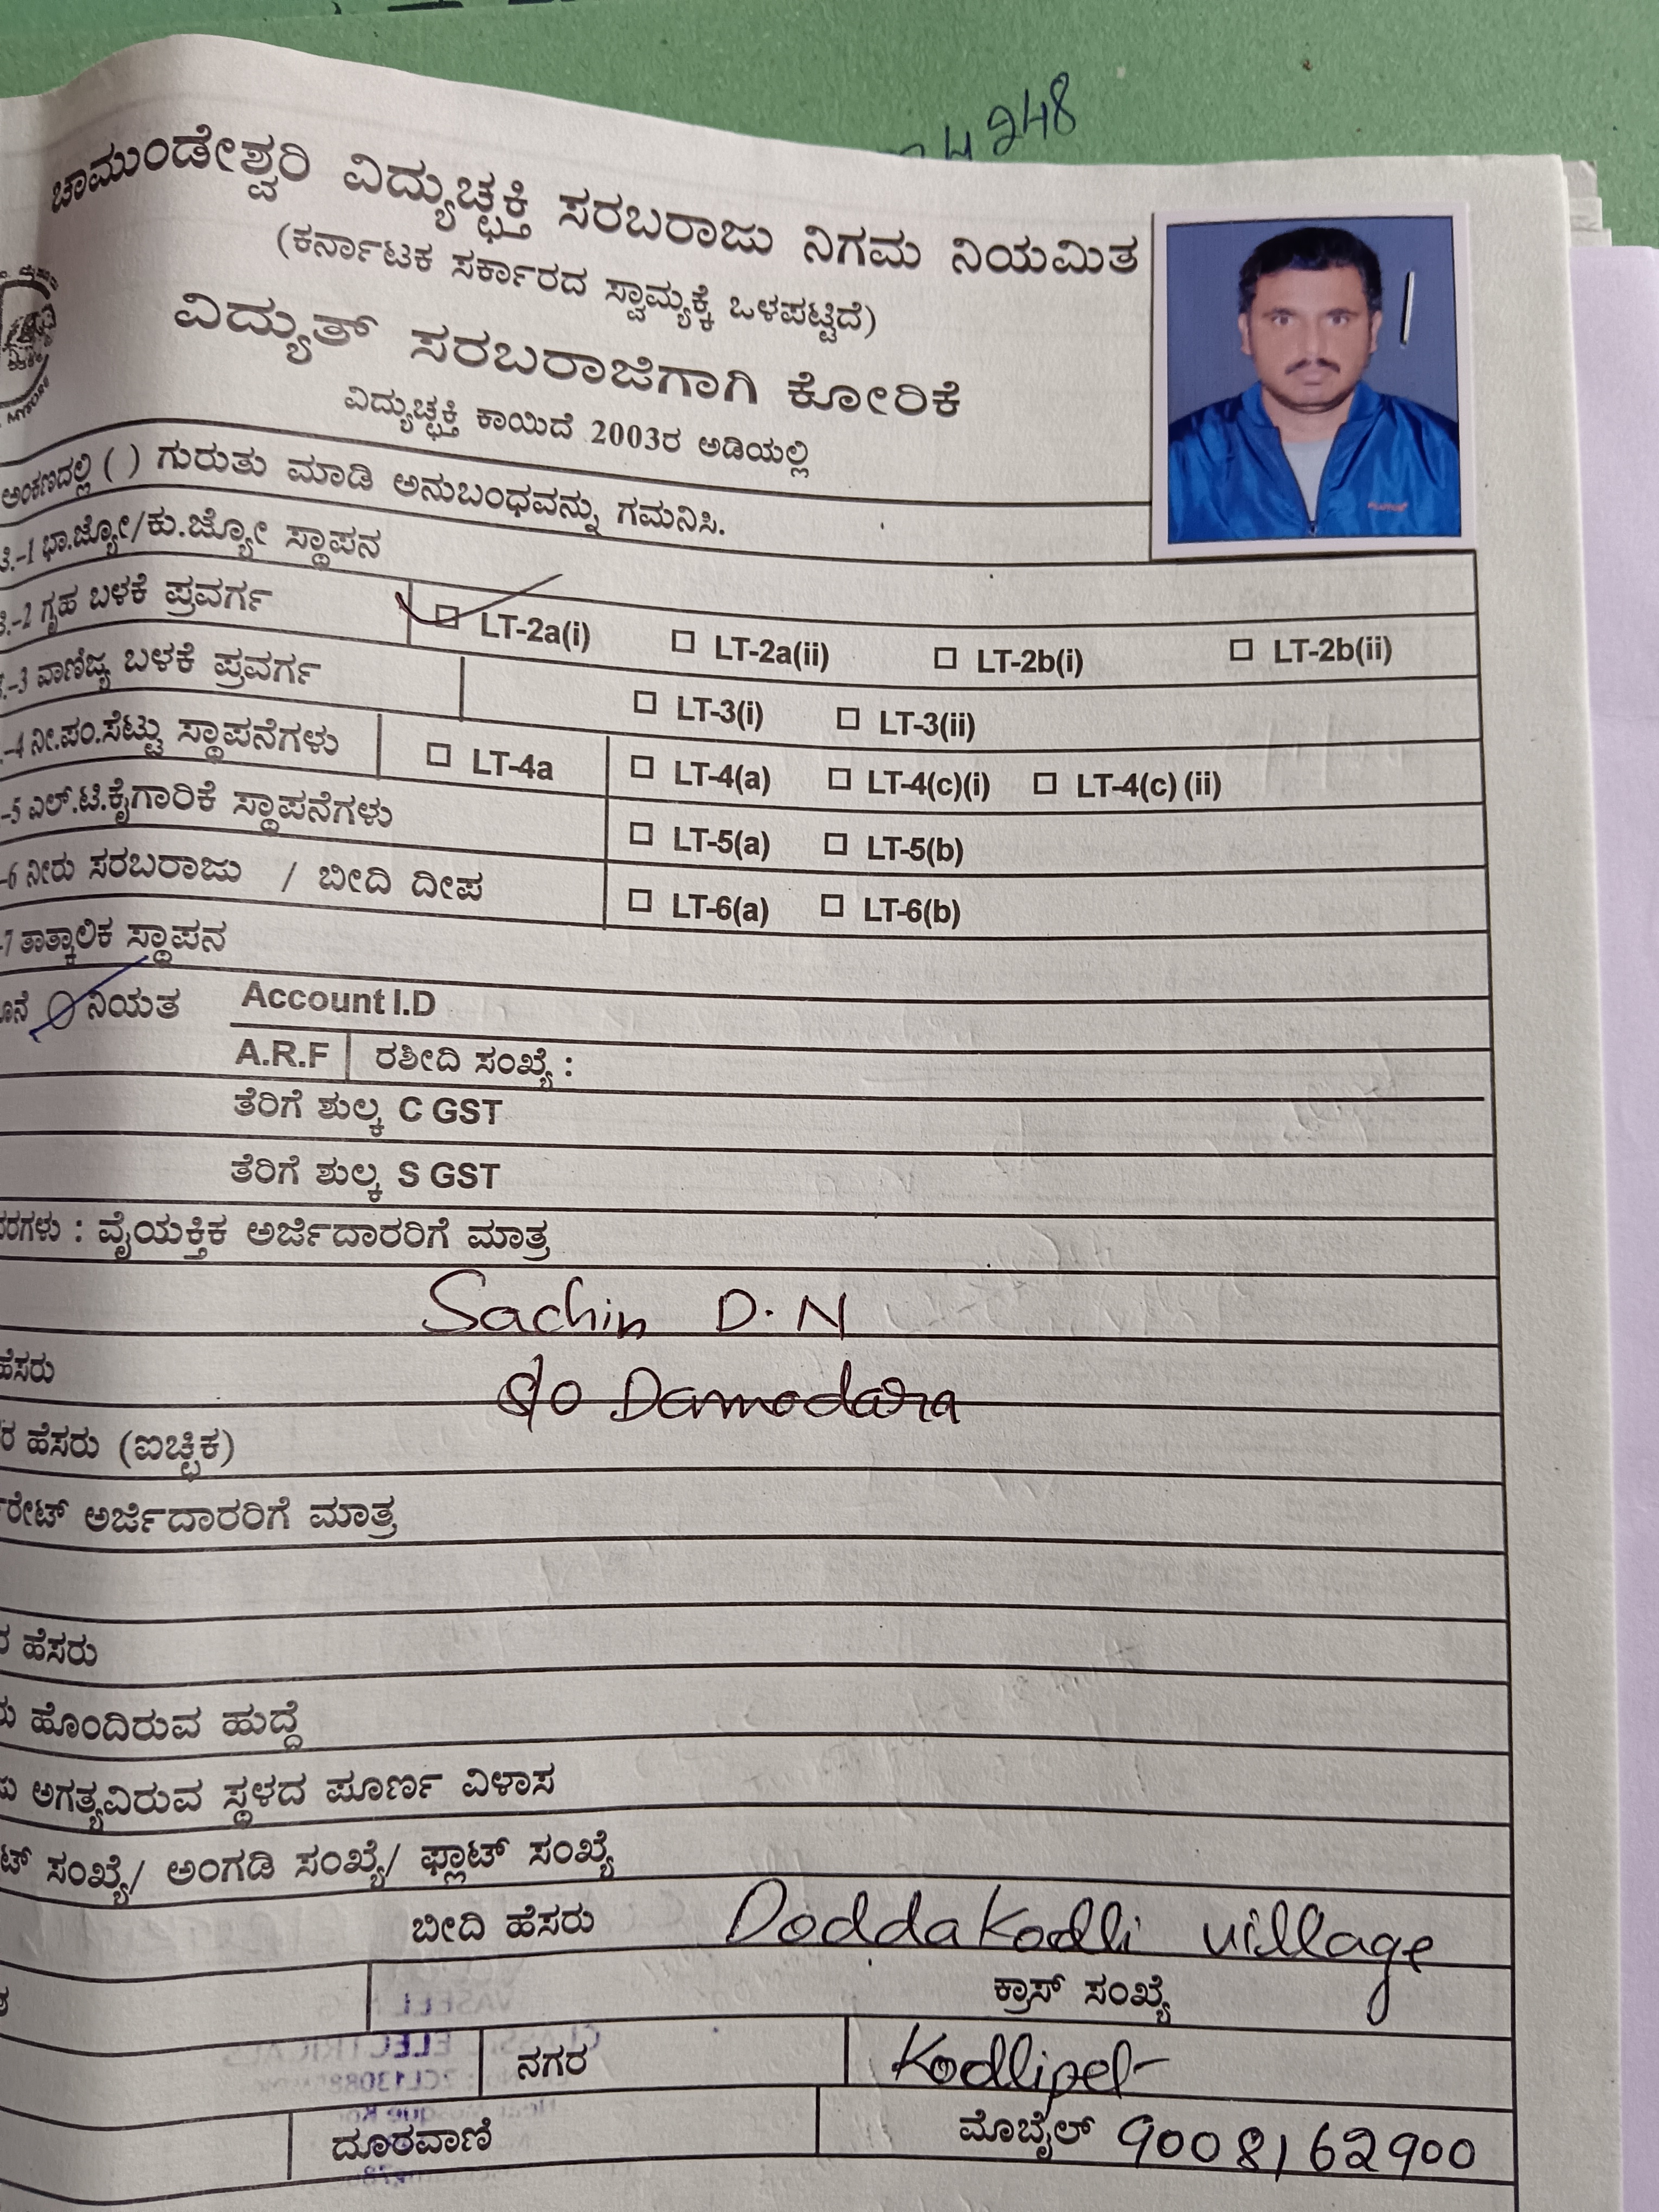 4248
ಚಾಮುಂಡೇಶ್ವರಿ ವಿದ್ಯುಚ್ಛಕ್ತಿ ಸರಬರಾಜು ನಿಗಮ ನಿಯಮಿತ
(ಕರ್ನಾಟಕ ಸರ್ಕಾರದ ಸ್ವಾಮ್ಯಕ್ಕೆ ಒಳಪಟ್ಟಿದೆ)
ವಿದ್ಯುತ್ ಸರಬರಾಜಿಗಾಗಿ ಕೋರಿಕೆ
ವಿದ್ಯುಚ್ಛಕ್ತಿ ಕಾಯಿದೆ 2003ರ ಅಡಿಯಲ್ಲಿ
MYSORE
ಅಂಕಣದಲ್ಲಿ ( ) ಗುರುತು ಮಾಡಿ ಅನುಬಂಧವನ್ನು ಗಮನಿಸಿ.
-1 ಭಾ.ಜ್ಯೋ/ಕು.ಜ್ಯೋ ಸ್ಥಾಪನ
-2 ಗೃಹ ಬಳಕೆ ಪ್ರವರ್ಗ LT-2a(i) LT-2a(ii) LT-2b(i) LT-2b(ii)
-3 ವಾಣಿಜ್ಯ ಬಳಕೆ ಪ್ರವರ್ಗ LT-3(i) LT-3(ii)
-4 ನೀ.ಪಂ.ಸೆಟ್ಟು ಸ್ಥಾಪನೆಗಳು LT-4a LT-4(a) LT-4(c)(i) LT-4(c) (ii)
-5 ಎಲ್.ಟಿ.ಕೈಗಾರಿಕೆ ಸ್ಥಾಪನೆಗಳು LT-5(a) LT-5(b)
-6 ನೀರು ಸರಬರಾಜು / ಬೀದಿ ದೀಪ LT-6(a) LT-6(b)
-7 ತಾತ್ಕಾಲಿಕ ಸ್ಥಾಪನ
ನಿಯತ Account I.D
A.R.F ರಶೀದಿ ಸಂಖ್ಯೆ :
ತೆರಿಗೆ ಶುಲ್ಕ C GST
ತೆರಿಗೆ ಶುಲ್ಕ S GST
ವೈಯಕ್ತಿಕ ಅರ್ಜಿದಾರರಿಗೆ ಮಾತ್ರ
Sachin D.N
ಹೆಸರು S/O Damodara
ಹೆಸರು (ಐಚ್ಛಿಕ)
ಅರ್ಜಿದಾರರಿಗೆ ಮಾತ್ರ
ಹೆಸರು
ಹೊಂದಿರುವ ಹುದ್ದೆ
ಅಗತ್ಯವಿರುವ ಸ್ಥಳದ ಪೂರ್ಣ ವಿಳಾಸ
ಸಂಖ್ಯೆ/ ಅಂಗಡಿ ಸಂಖ್ಯೆ/ ಫ್ಲಾಟ್ ಸಂಖ್ಯೆ
ಬೀದಿ ಹೆಸರು Doddakodli village
ಕ್ರಾಸ್ ಸಂಖ್ಯೆ
ನಗರ Kodlipet
ದೂರವಾಣಿ ಮೊಬೈಲ್ 9008162900